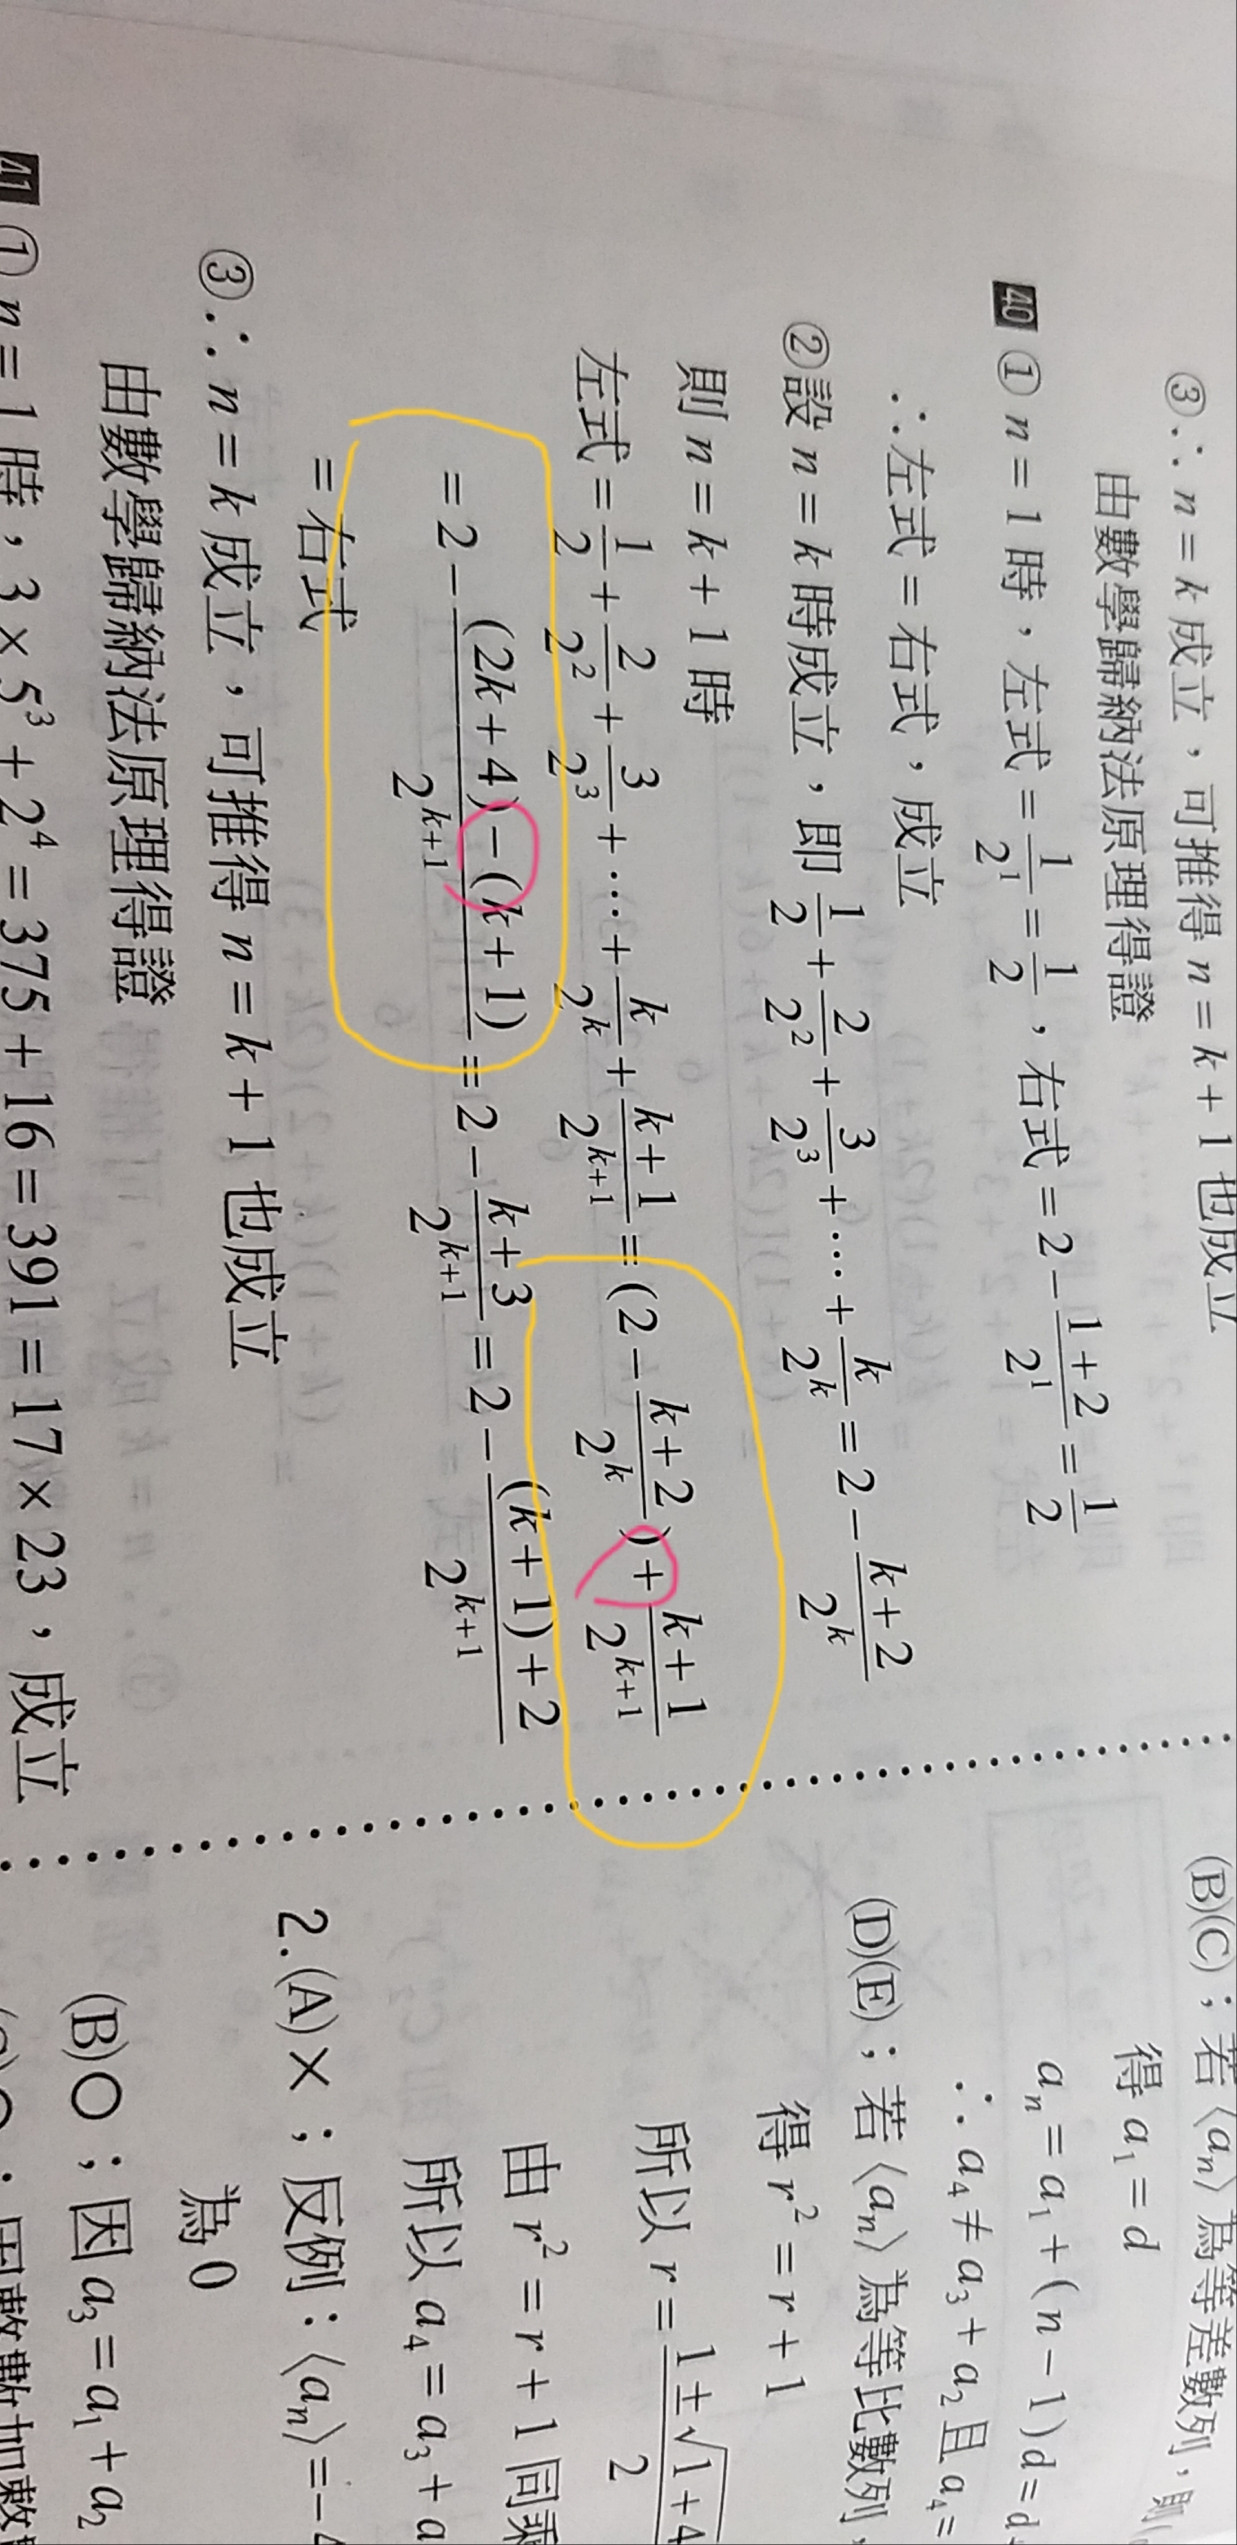 ③∴ n = k 成立，可推得 n = k + 1 也成立
由數學歸納法原理得證
40 ① n = 1 時，左式 = 1/2¹ = 1/2，右式 = 2 − (1+2)/2¹ = 1/2
∴左式 = 右式，成立
②設 n = k 時成立，即 1/2 + 2/2² + 3/2³ + ⋯ + k/2ᵏ = 2 − (k+2)/2ᵏ
則 n = k + 1 時
左式 = 1/2 + 2/2² + 3/2³ + ⋯ + k/2ᵏ + (k+1)/2ᵏ⁺¹ = (2 − (k+2)/2ᵏ) + (k+1)/2ᵏ⁺¹
= 2 − ((2k+4) − (k+1))/2ᵏ⁺¹ = 2 − (k+3)/2ᵏ⁺¹ = 2 − ((k+1)+2)/2ᵏ⁺¹
= 右式
③∴ n = k 成立，可推得 n = k + 1 也成立
由數學歸納法原理得證
41 ① n = 1 時，3 × 5³ + 2⁴ = 375 + 16 = 391 = 17 × 23，成立
(B)(C)；若⟨aₙ⟩為等差數列，則
得 a₁ = d
aₙ = a₁ + (n − 1)d = d
∴ a₄ ≠ a₃ + a₂ 且 a₄ =
(D)(E)；若⟨aₙ⟩為等比數列，
得 r² = r + 1
所以 r = (1 ± √(1+4))/2
由 r² = r + 1 同乘
所以 a₄ = a₃ + a
2.(A)×；反例：⟨aₙ⟩ = −
為 0
(B)○；因 a₃ = a₁ + a₂